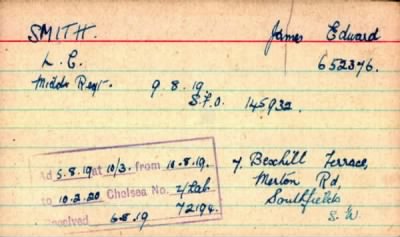 SMITH. James Edward
L. C. 652376.
Middx Regt. 9.8.19.
S.F.O. 145932.
Ad 5.8.19 at 10/3. from 10.8.19.
to 10.2.20 Chelsea No. 4/Lab
72194.
Received 6.8.19
7. Bexhill Terrace,
Merton Rd,
Southfields
S.W.